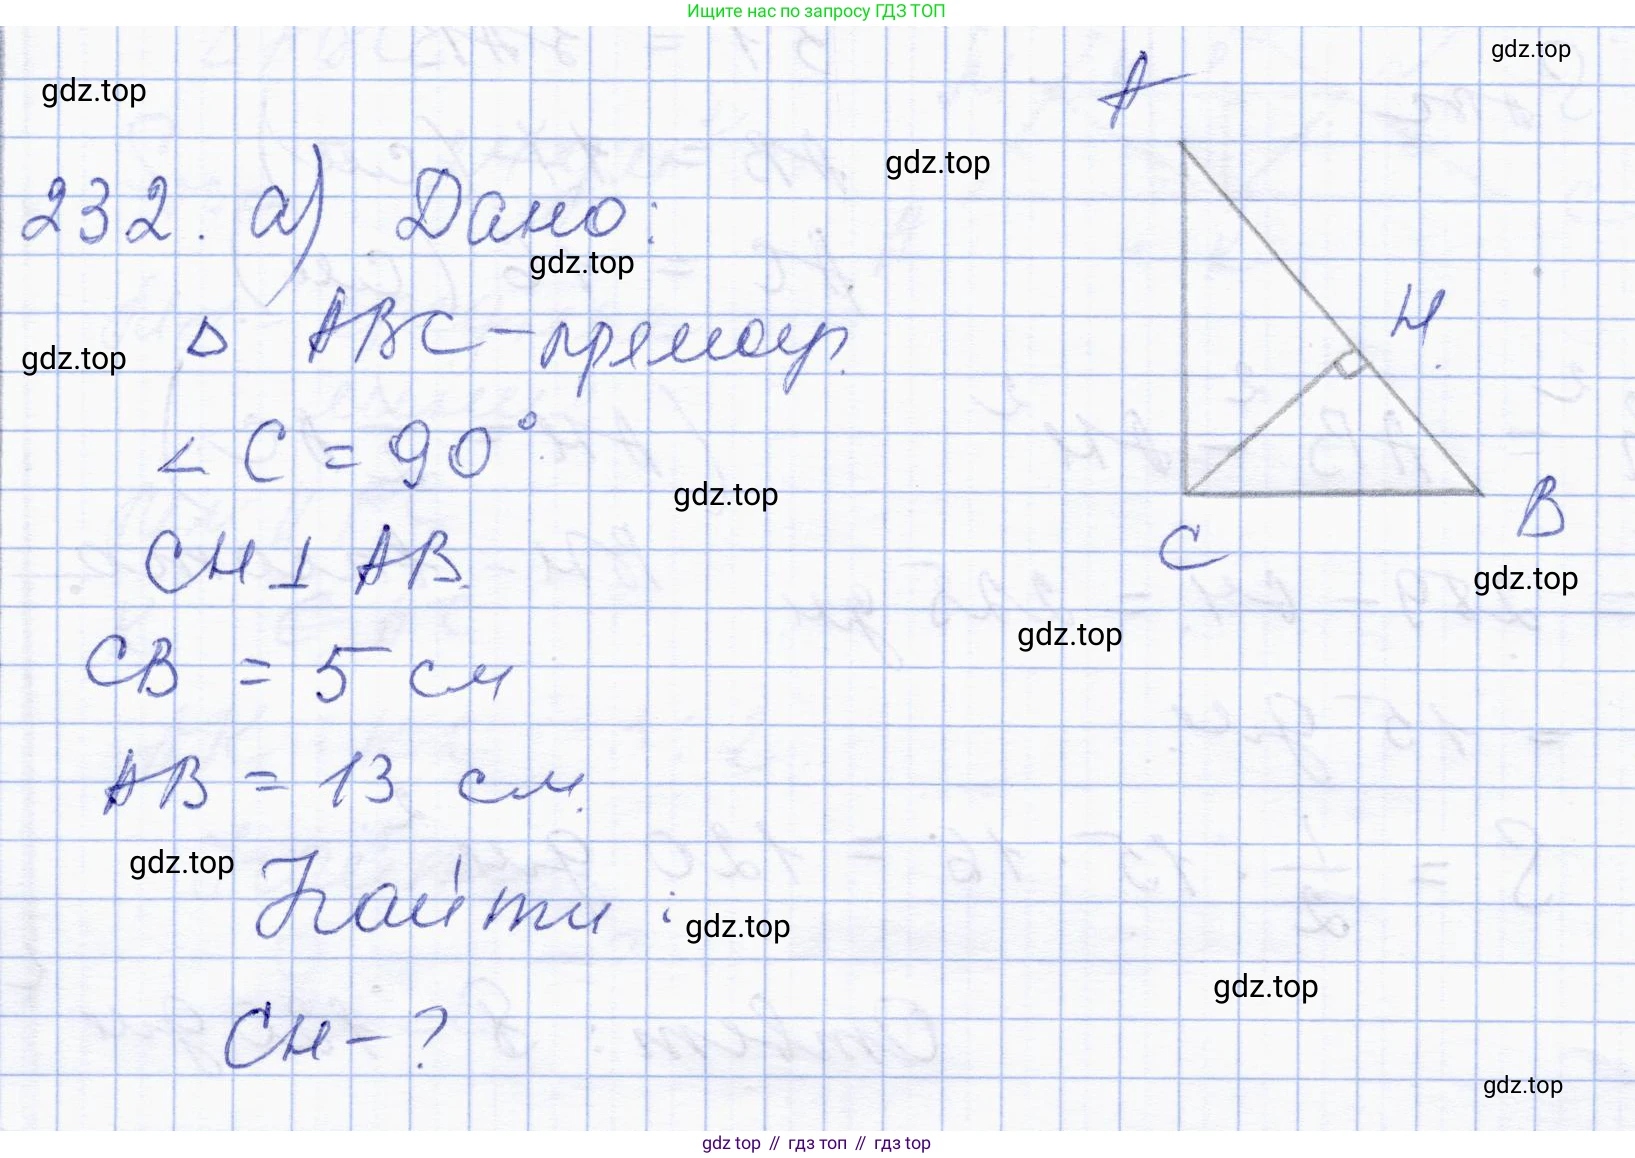 Ищите нас по запросу ГДЗ ТОП
gdz.top
gdz.top
A
gdz.top
232. а) Дано:
gdz.top
△ ABC – прямоуг.
H
gdz.top
∠ C = 90°
gdz.top
B
C
CH ⊥ AB
gdz.top
gdz.top
CB = 5 см
AB = 13 см.
gdz.top
Найти:
gdz.top
gdz.top
CH – ?
gdz.top
gdz top // гдз топ // гдз top